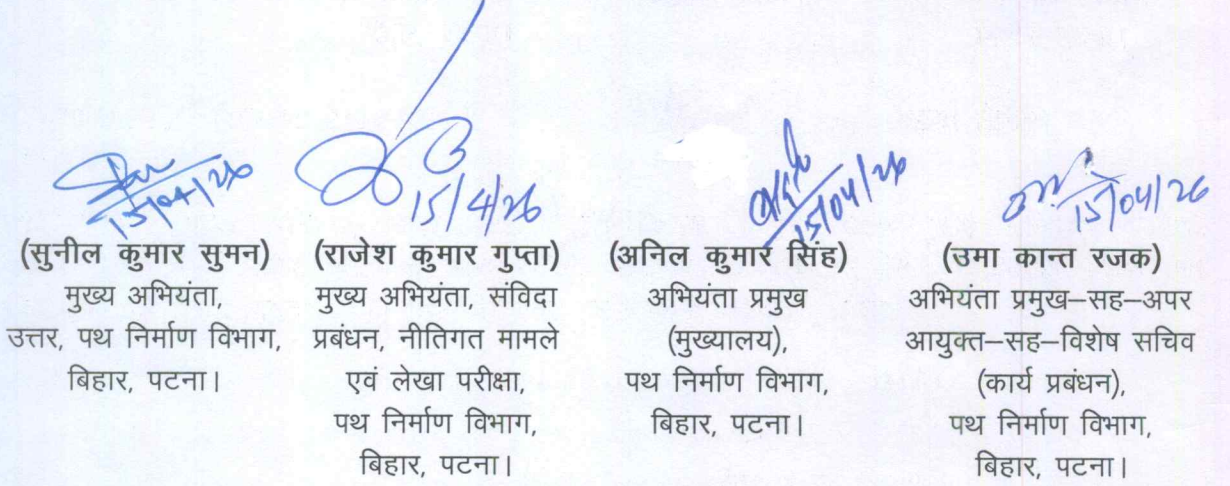 15/04/26
15/4/26
15/04/26
15/04/26
(सुनील कुमार सुमन)
मुख्य अभियंता,
उत्तर, पथ निर्माण विभाग,
बिहार, पटना।
(राजेश कुमार गुप्ता)
मुख्य अभियंता, संविदा
प्रबंधन, नीतिगत मामले
एवं लेखा परीक्षा,
पथ निर्माण विभाग,
बिहार, पटना।
(अनिल कुमार सिंह)
अभियंता प्रमुख
(मुख्यालय),
पथ निर्माण विभाग,
बिहार, पटना।
(उमा कान्त रजक)
अभियंता प्रमुख–सह–अपर
आयुक्त–सह–विशेष सचिव
(कार्य प्रबंधन),
पथ निर्माण विभाग,
बिहार, पटना।